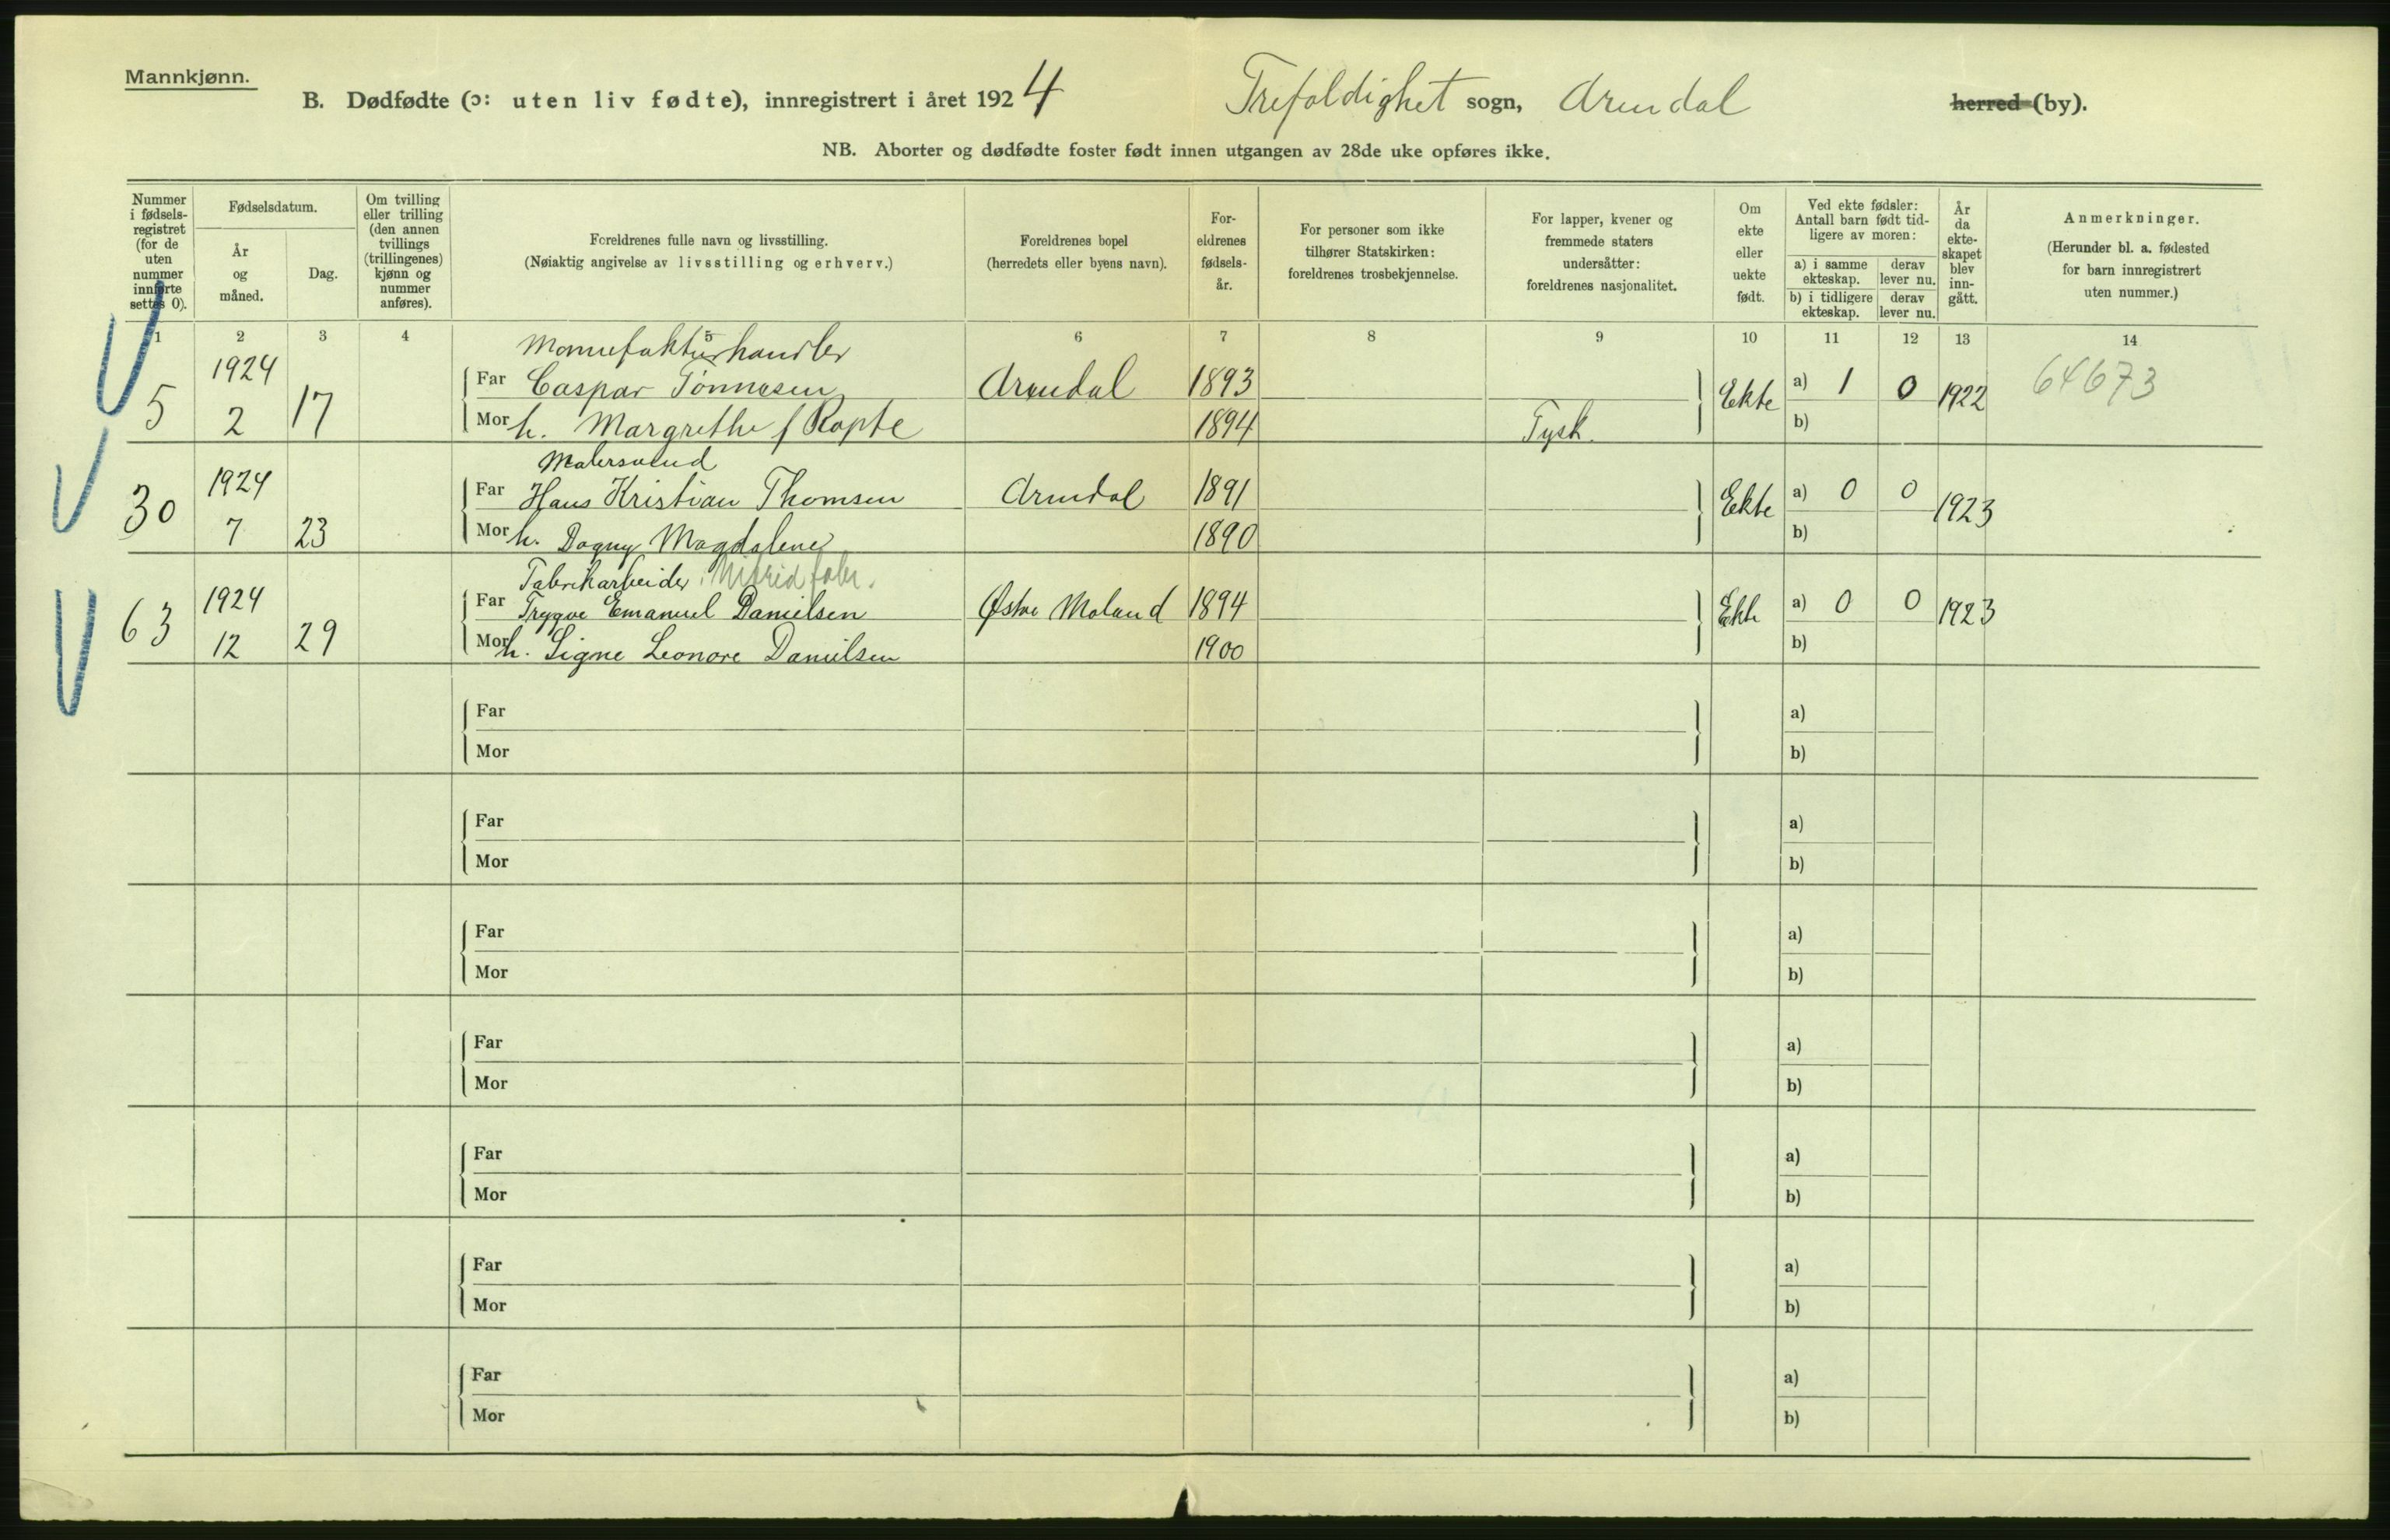 Mannkjønn.
B. Dødfødte (ɔ: uten liv fødte), innregistrert i året 1924 Trefoldighet sogn, Arendal herred (by).
NB. Aborter og dødfødte foster født innen utgangen av 28de uke opføres ikke.
Nummer i fødsels-registret (for de uten nummer innførte settes 0).
Fødselsdatum.
År og måned.
Dag.
Om tvilling eller trilling (den annen tvillings (trillingenes) kjønn og nummer anføres).
Foreldrenes fulle navn og livsstilling.
(Nøiaktig angivelse av livsstilling og erhverv.)
Foreldrenes bopel
(herredets eller byens navn).
For-eldrenes fødsels-år.
For personer som ikke tilhører Statskirken: foreldrenes trosbekjennelse.
For lapper, kvener og fremmede staters undersåtter: foreldrenes nasjonalitet.
Om ekte eller uekte født.
Ved ekte fødsler: Antall barn født tid-ligere av moren:
a) i samme ekteskap. derav lever nu.
b) i tidligere ekteskap. derav lever nu.
År da ekte-skapet blev inn-gått.
Anmerkninger.
(Herunder bl. a. fødested for barn innregistrert uten nummer.)
1 2 3 4 5 6 7 8 9 10 11 12 13 14
Manufakturhandler
5 1924 2 17 Far Caspar Tønnesen Arendal 1893 Ekte a) 1 0 1922 64673
Mor h. Margrethe f Rapte 1894 Tysk. b)
Malersvend
30 1924 7 23 Far Hans Kristian Thomsen Arendal 1891 Ekte a) 0 0 1923
Mor h. Dagny Magdalene 1890 b)
Fabrikarbeider, Nitridfabr.
63 1924 12 29 Far Trygve Emanuel Danielsen Østre Moland 1894 Ekte a) 0 0 1923
Mor h. Signe Leonore Danielsen 1900 b)
Far a)
Mor b)
Far a)
Mor b)
Far a)
Mor b)
Far a)
Mor b)
Far a)
Mor b)
Far a)
Mor b)
Far a)
Mor b)